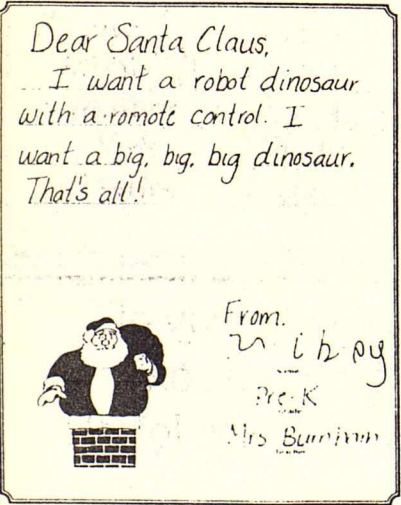 Dear Santa Claus,
I want a robot dinosaur
with a romote control. I
want a big, big, big dinosaur.
That's all!
From.
Pre-K
Mrs